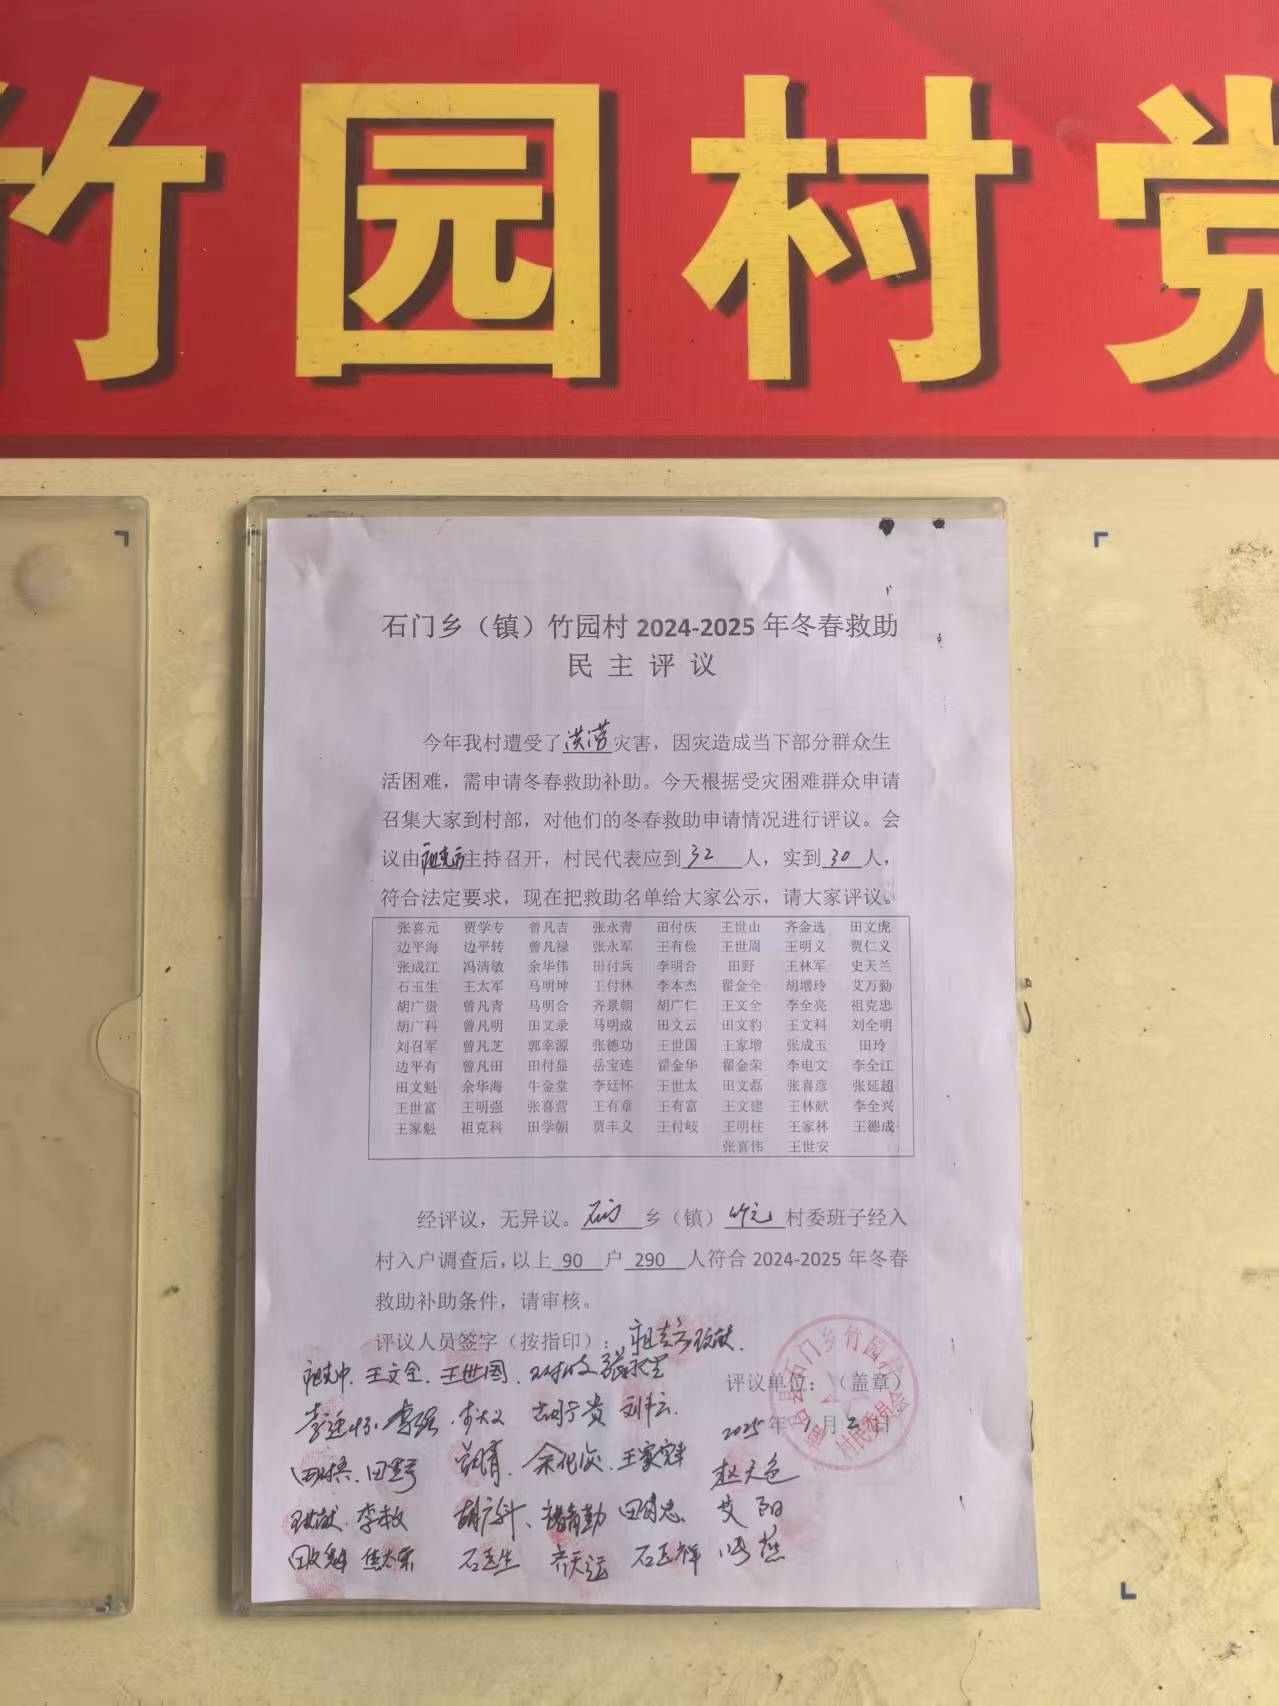 竹园村党
石门乡（镇）竹园村 2024-2025 年冬春救助
民 主 评 议
今年我村遭受了洪涝灾害，因灾造成当下部分群众生
活困难，需申请冬春救助补助。今天根据受灾困难群众申请
召集大家到村部，对他们的冬春救助申请情况进行评议。会
议由主持召开，村民代表应到 32 人，实到 30 人，
符合法定要求，现在把救助名单给大家公示，请大家评议。
张喜元 贾学专 曾凡吉 张永青 田付庆 王世山 齐金选 田文虎
边平海 边平转 曾凡禄 张永军 王有俭 王世周 王明义 贾仁义
张成江 冯清敏 余华伟 田付兵 李明合 田野 王林军 史天兰
石玉生 王太军 马明坤 王付林 李本杰 翟金全 胡增玲 艾万勤
胡广贵 曾凡青 马明合 齐景朝 胡广仁 王文全 李全亮 祖克忠
胡广科 曾凡明 田文录 马明成 田文云 田文豹 王文科 刘全明
刘召军 曾凡芝 郭幸源 张德功 王世国 王家增 张成玉 田玲
边平有 曾凡田 田付显 岳宝连 翟金华 翟金荣 李电文 李全江
田文魁 余华海 牛金堂 李廷怀 王世太 田文磊 张喜彦 张延超
王世富 王明强 张喜营 王有章 王有富 王文建 王林献 李全兴
王家魁 祖克科 田学朝 贾丰义 王付岐 王明柱 王家林 王德成
张喜伟 王世安
经评议，无异议。石门 乡（镇）竹元 村委班子经入
村入户调查后，以上 90 户 290 人符合 2024-2025 年冬春
救助补助条件，请审核。
评议人员签字（按指印）：
王文全 王世国
评议单位：（盖章）
李廷怀 胡广贵
2025 年 1 月 2 日
石门乡竹园村
村民委员会
田野
胡广科 艾阳
石玉生 齐天运 石玉祥